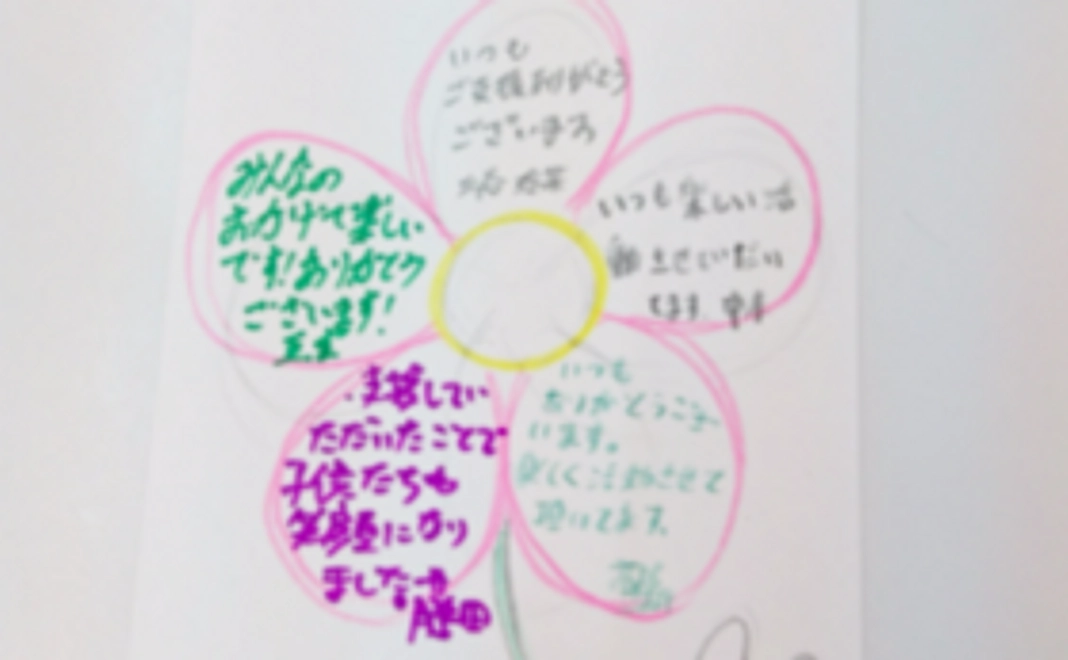 いつも
ご支援ありがとう
ございます
みんなの
おかげで楽しい
です!ありがとう
ございます!
いつも楽しい活
動させていただい
てます。
支援してい
ただいたことで
子供たちも
笑顔になり
ました
藤田
いつも
ありがとうござ
います。
楽しく活動させて
頂いてます。